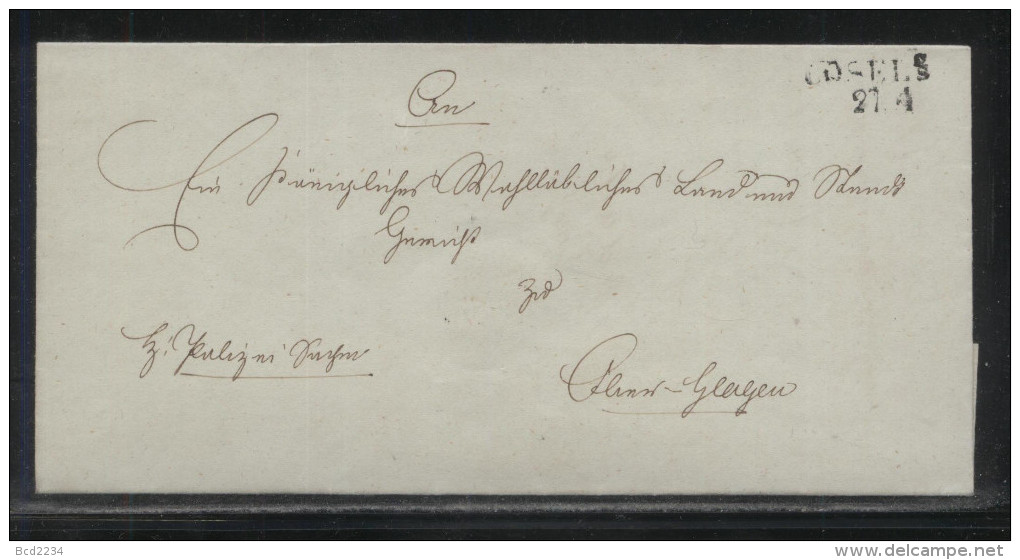 COSEL
27. 4
An
Ein Königliches Wohllöbliches Land und Stadt
Gericht
zu
H. Polizei Sachen
Ober-Glogau
Bcd2234
www.delcampe.net